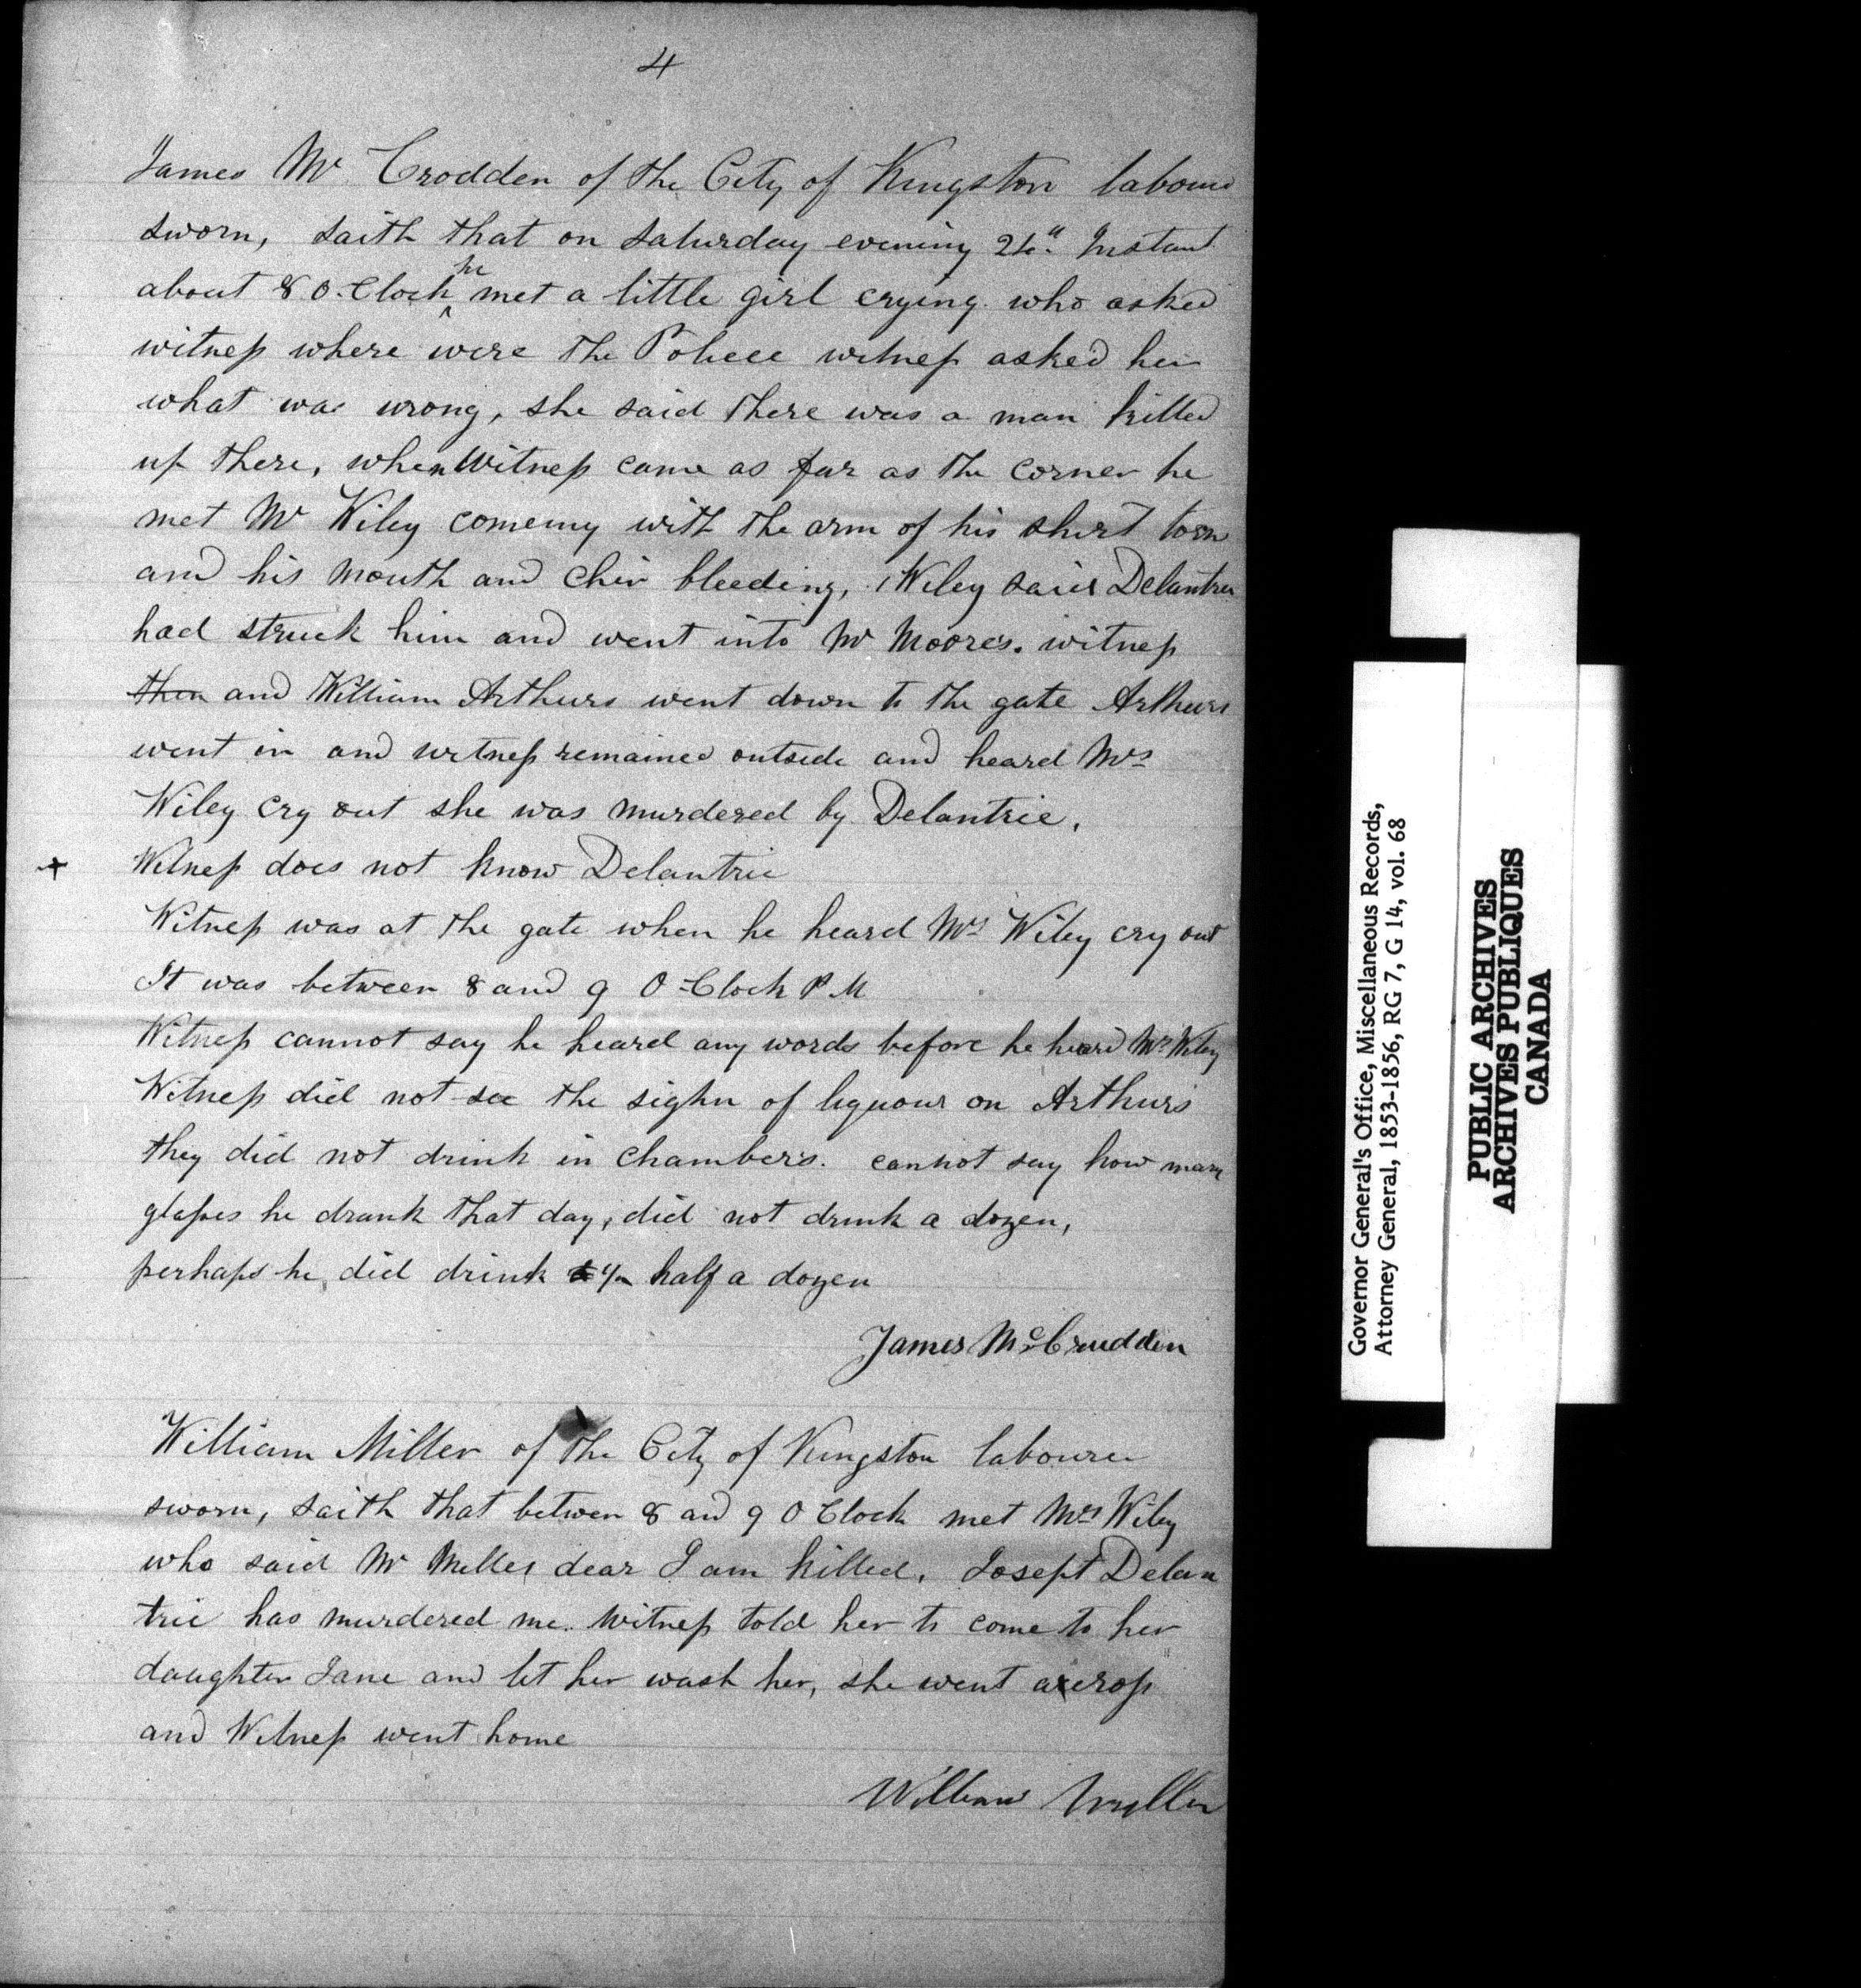 4
James Mr Crodden of the City of Kingston labourer
sworn, saith that on Saturday evening 24th Instant
about 8 O.Clock he met a little girl crying who asked
witness where were the Police witness asked her
what was wrong, she said there was a man killed
up there, when Witness came as far as the corner he
met Mr Wiley comeing with the arm of his shirt torn
and his mouth and chin bleeding, Wiley said Delantrie
had struck him and went into Mr Moores. witness
then and William Arthurs went down to the gate Arthurs
went in and witness remained outside and heard Mrs
Wiley cry out she was murdered by Delantrie.
+ Witness does not know Delantrie
Witness was at the gate when he heard Mrs Wiley cry out
It was between 8 and 9 O-Clock P.M
Witness cannot say he heard any words before he heard Mrs Wiley
Witness did not see the sighn of liquour on Arthurs
they did not drink in Chambers. cannot say how many
glasses he drank that day, did not drink a dozen,
perhaps he did drink half a dozen
James McCrudden
William Miller of the City of Kingston labourer
sworn, saith that betwen 8 and 9 O Clock met Mrs Wiley
who said Mr Miller dear I am killed. Josept Delan
trie has murdered me. Witness told her to come to her
daughter Jane and let her wash her, she went across
and Witness went home
William Miller
Governor General's Office, Miscellaneous Records,
Attorney General, 1853-1856, RG 7, G 14, vol. 68
PUBLIC ARCHIVES
ARCHIVES PUBLIQUES
CANADA